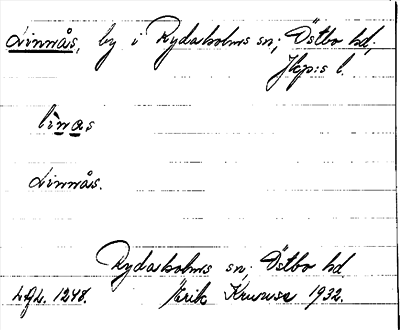 Linnås, by i Rydaholms sn; Östbo hd,
Jkp:s l.
linas
Linnås.
Rydaholms sn; Östbo hd.
Erik
1932.